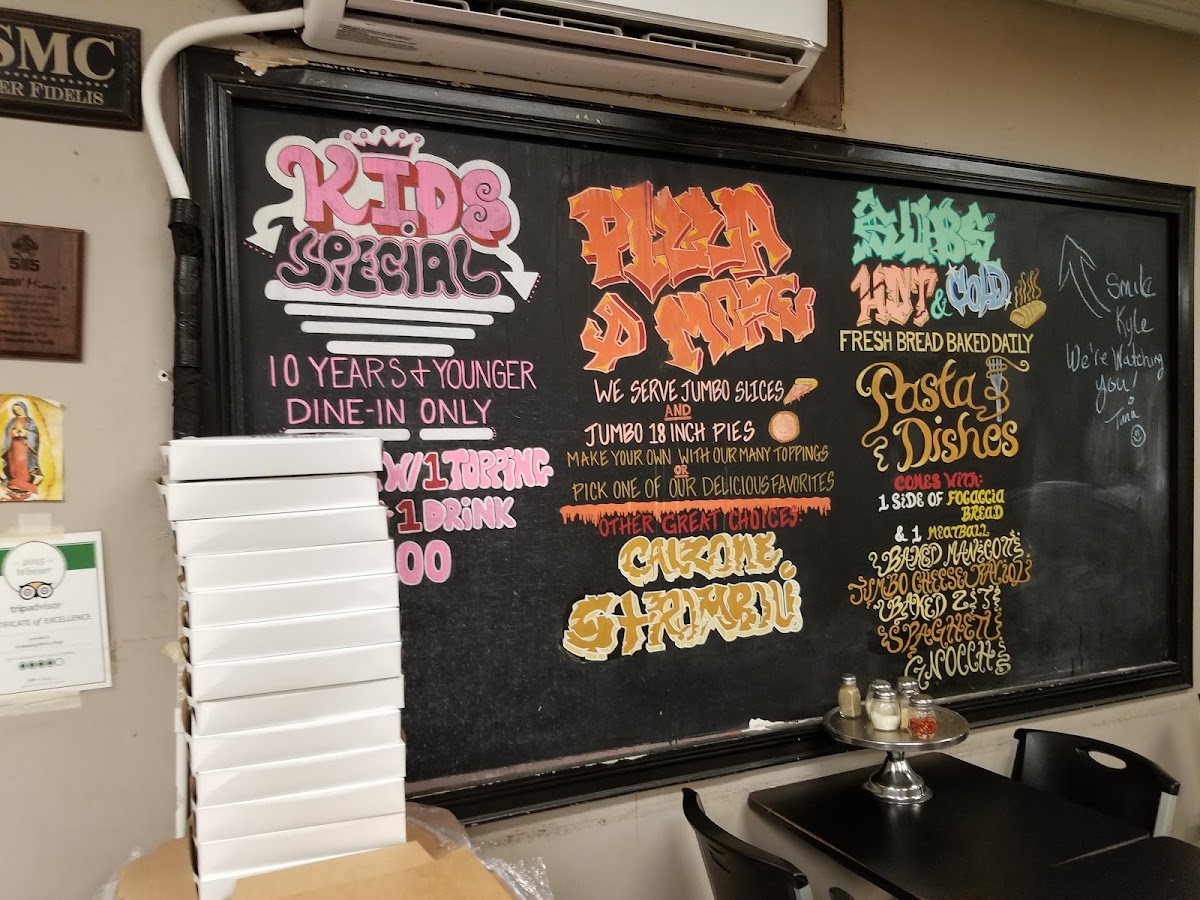 SMC
ER FIDELIS
KIDS
SPECIAL
10 YEARS + YOUNGER
DINE-IN ONLY
W/ 1 TOPPING
+ 1 DRINK
00
PIZZA
& MORE
WE SERVE JUMBO SLICES
AND
JUMBO 18 INCH PIES
MAKE YOUR OWN WITH OUR MANY TOPPINGS
OR
PICK ONE OF OUR DELICIOUS FAVORITES
OTHER GREAT CHOICES:
CALZONE
STROMBOLI
SUBS
HOT & COLD
FRESH BREAD BAKED DAILY
Pasta
Dishes
COMES WITH:
1 SIDE OF FOCACCIA
BREAD
& 1 MEATBALL
BAKED MANICOTTI
JUMBO CHEESE RAVIOLI
BAKED ZITI
SPAGHETTI
GNOCCHI
Smile
Kyle
We're Watching
you!
Tina
2015
Winner
tripadvisor
TIFICATE of EXCELLENCE